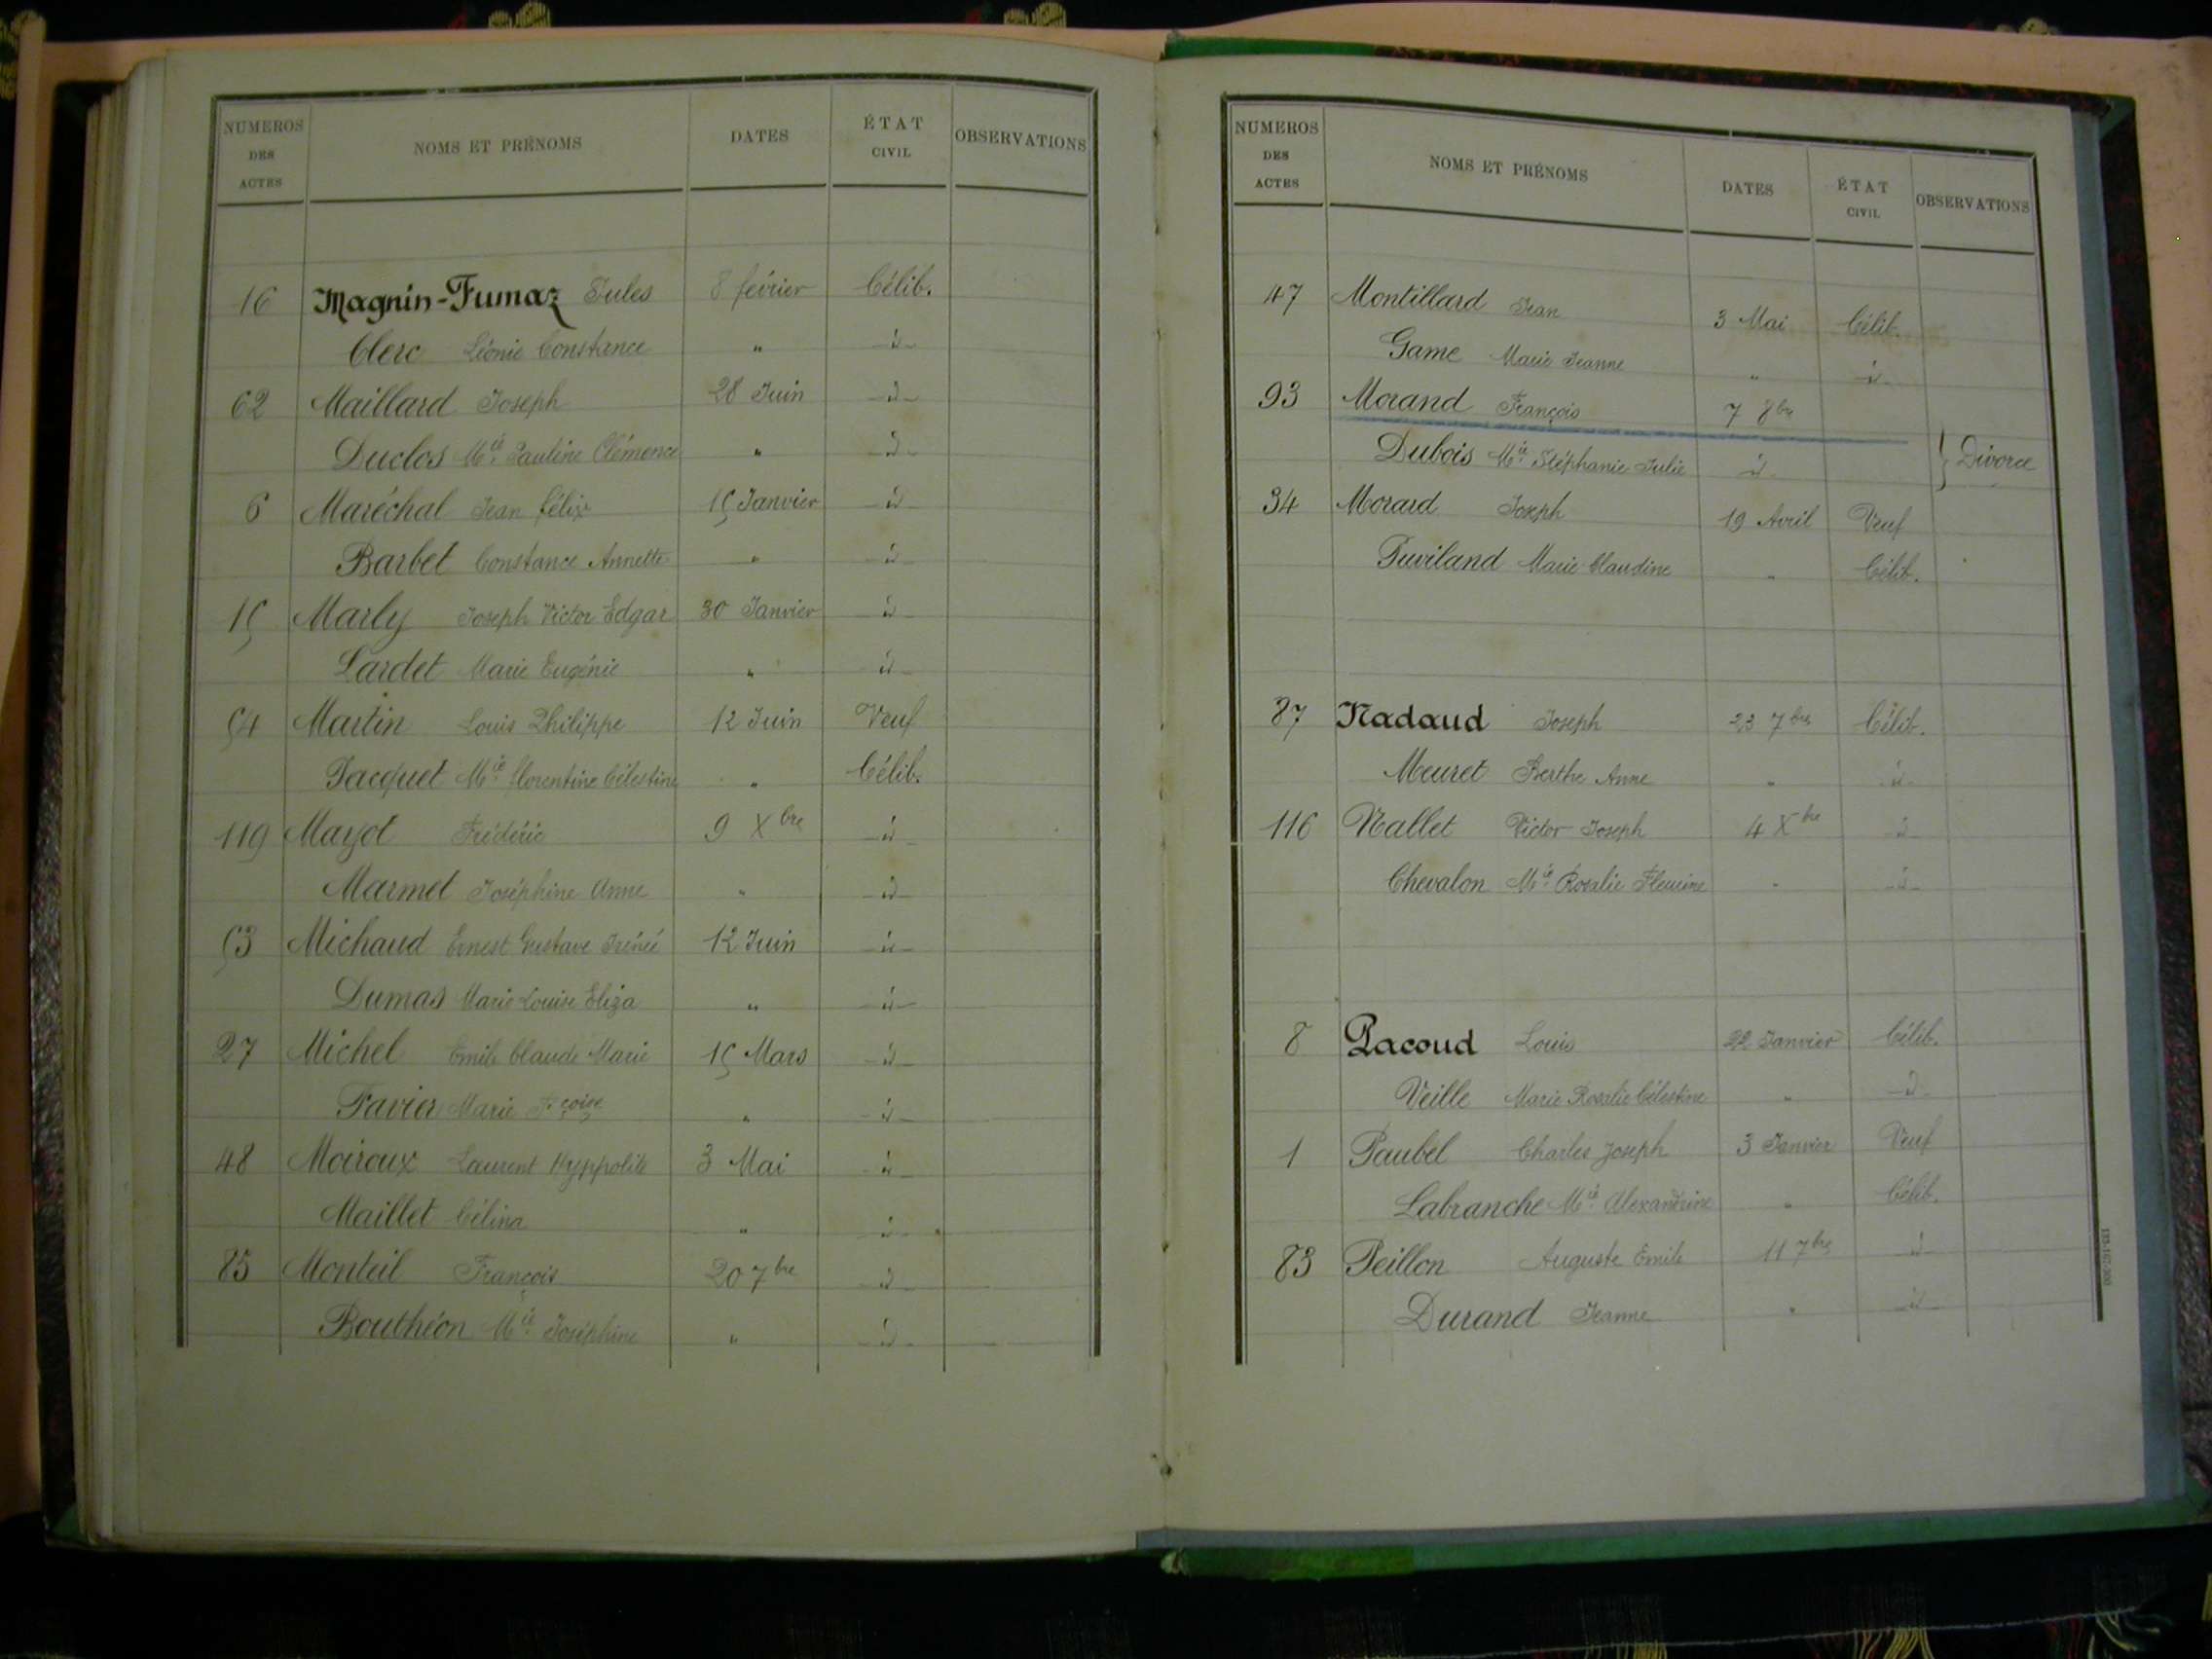 NUMEROS DES ACTES NOMS ET PRÉNOMS DATES ÉTAT CIVIL OBSERVATIONS
16 Magnin-Fumaz Jules 8 février Célib.
Clerc Léonie Constance " -d-
62 Maillard Joseph 28 Juin -d-
Duclos Mie Pauline Clémence " -d-
6 Maréchal Jean félix 15 Janvier -d-
Barbet Constance Annette " -d-
15 Marly Joseph Victor Edgar 30 Janvier -d-
Lardet Marie Eugénie " -d-
54 Martin Louis Philippe 12 Juin Veuf
Jacquet Mie florentine Célestine " Célib.
119 Mayot Frédéric 9 Xbre -d-
Marmet Joséphine Anne " -d-
53 Michaud Ernest Gustave Irénée 12 Juin -d-
Dumas Marie Louise Eliza " -d-
27 Michel Emile Claude Marie 15 Mars -d-
Favier Marie Fçoise " -d-
48 Moiroux Laurent Hyppolite 3 Mai -d-
Maillet Célina " -d-
85 Monteil François 20 7bre -d-
Bouthéon Mie Joséphine " -d-
NUMEROS DES ACTES NOMS ET PRÉNOMS DATES ÉTAT CIVIL OBSERVATIONS
47 Montillard Jean 3 Mai Célib.
Game Marie Jeanne " -d-
93 Morand François 7 8bre
Dubois Mie Stéphanie Julie -d- } Divorce
34 Morard Joseph 19 Avril Veuf
Puviland Marie Claudine " Célib.
87 Nadaud Joseph 23 7bre Célib.
Meuret Berthe Anne " -d-
116 Nallet Victor Joseph 4 Xbre -d-
Chevalon Mie Rosalie Fleurine " -d-
8 Pacoud Louis 22 Janvier Célib.
Veille Marie Rosalie Célestine " -d-
1 Paubel Charles Joseph 3 Janvier Veuf
Labranche Mie Alexandrine " Célib.
83 Peillon Auguste Emile 11 7bre -d-
Durand Jeanne " -d-